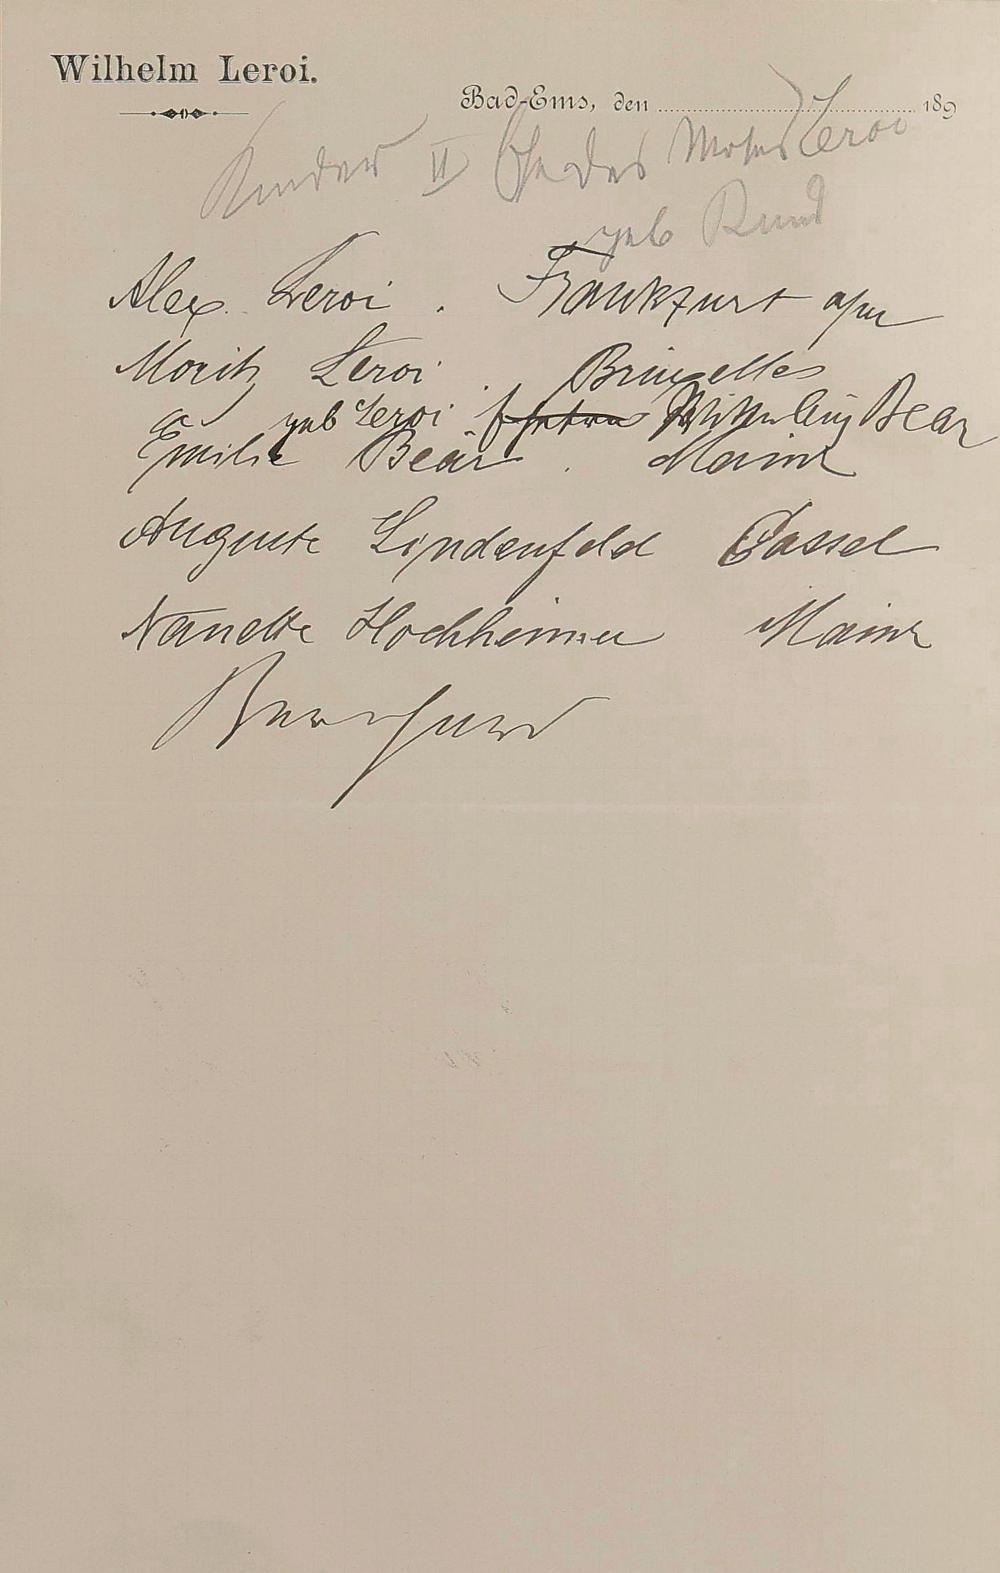 Wilhelm Leroi.
Bad-Ems, den ........ 189
Kinder II Ehe des Moses Leroi
geb
Alex Leroi . Frankfurt a/m
Moritz Leroi . Bruxelles
geb Leroi Bear
Emilie Bear . Mainz
Auguste Lindenfeld Cassel
Nanette Hochheimer Mainz